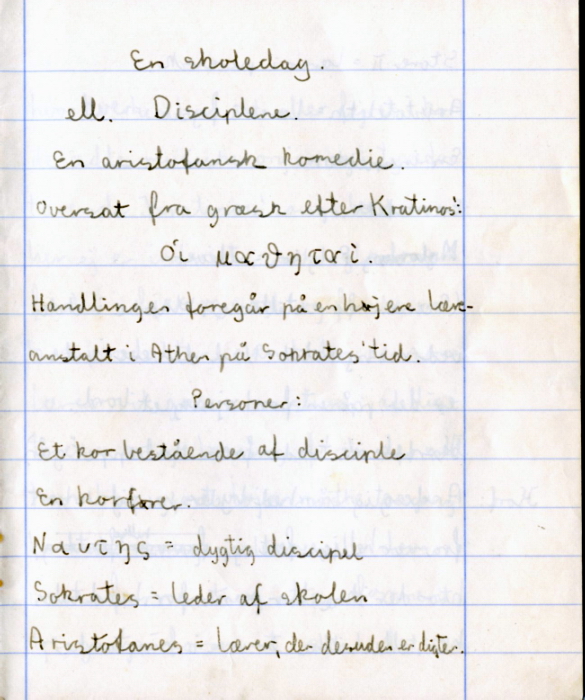 En skoledag.
ell. Disciplene.
En aristofansk komedie.
Oversat fra græsk efter Kratinos':
Οἱ μαθηταὶ.
Handlingen foregår på en højere lære-
anstalt i Athen på Sokrates' tid.
Personer:
Et kor bestående af disciple
En korfører.
Ναύτης = dygtig discipel
Sokrates = leder af skolen
Aristofanes = lærer, der desuden er digter.